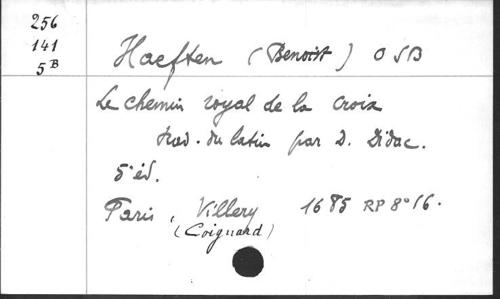 256
141
5 B
Haeften (Benoist) O S B
Le chemin royal de la croix
trad. du latin par D. Didac.
5e éd.
Paris, Villery 1685 RP 8° 16.
(Coignard)